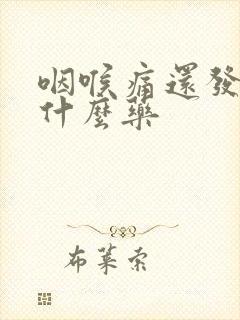 咽喉痛還發
什麼藥
布萊索